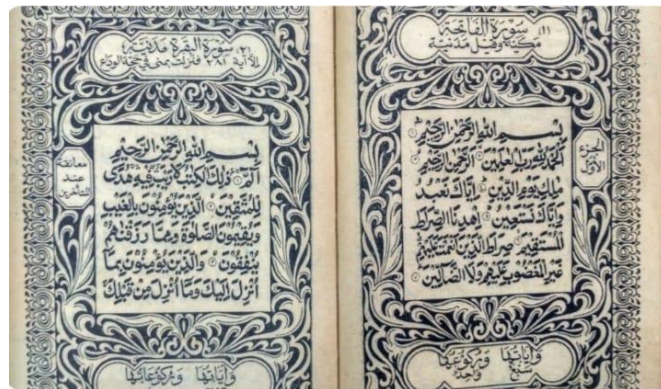 (١) سُورَةُ الْفَاتِحَةِ
مَكِّيَّة وَقِيلَ مَدَنِيَّة
الجزء
الأول
بِسْمِ اللهِ الرَّحْمٰنِ الرَّحِيْمِ
اَلْحَمْدُ لِلّٰهِ رَبِّ الْعٰلَمِيْنَ الرَّحْمٰنِ الرَّحِيْمِ
مٰلِكِ يَوْمِ الدِّيْنِ اِيَّاكَ نَعْبُدُ
وَاِيَّاكَ نَسْتَعِيْنُ اِهْدِنَا الصِّرَاطَ
الْمُسْتَقِيْمَ صِرَاطَ الَّذِيْنَ اَنْعَمْتَ عَلَيْهِمْ
غَيْرِ الْمَغْضُوْبِ عَلَيْهِمْ وَلَا الضَّآلِّيْنَ
وَآيَاتُهَا سَبْع وَرُكُوعُهَا وَاحِد
(٢) سُورَةُ الْبَقَرَةِ مَدَنِيَّة
إلا آية ٢٨١ فنزلت بمنى في حجة الوداع
معانقة
عند
المتأخرين
بِسْمِ اللهِ الرَّحْمٰنِ الرَّحِيْمِ
الٓمّٓ ذٰلِكَ الْكِتٰبُ لَا رَيْبَ فِيْهِ هُدًى
لِّلْمُتَّقِيْنَ الَّذِيْنَ يُؤْمِنُوْنَ بِالْغَيْبِ
وَيُقِيْمُوْنَ الصَّلٰوةَ وَمِمَّا رَزَقْنٰهُمْ
يُنْفِقُوْنَ وَالَّذِيْنَ يُؤْمِنُوْنَ بِمَا
اُنْزِلَ اِلَيْكَ وَمَا اُنْزِلَ مِنْ قَبْلِكَ
وَآيَاتُهَا وَرُكُوعَاتُهَا